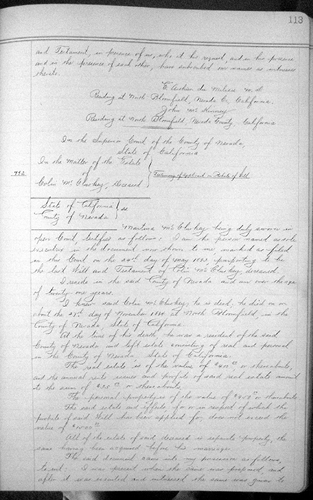 113
and Testament, in presence of us, who at his request, and in his presence
and in the presence of each other, have subscribed our names as witnesses
thereto.
Residing at North Bloomfield, Nevada Co, California.
John Mc Kinney
Residing at North Bloomfield, Nevada County, California
In the Superior Court of the County of Nevada,
State of California
In the Matter of the Estate
of
Colin Mc Cluskey, Deceased
Testimony of applicant on Probate of Will
State of California } ss
County of Nevada
Mc Cluskey being duly sworn in
open Court, testifies as follows: I am the person named as
described in the document now shown to me marked as filed
in this Court on the day of May 1885 purporting to be
the last Will and Testament of Colin Mc Cluskey, deceased.
I reside in the said County of Nevada and am over the age
of twenty one years.
I knew said Colin Mc Cluskey, he is dead, he died on or
about the day of November 1884 at North Bloomfield, in the
County of Nevada, State of California.
At the time of his death, he was a resident of the said
County of Nevada and left estate consisting of real and personal
in the County of Nevada, State of California.
The real estate is of the value of or thereabouts,
and the annual rents issues and profits of said real estate amount
to the sum of or thereabouts.
The personal property is of the value of or thereabouts
The said estate and effects for or in respect of which the
probate of said Will has been applied for, does not exceed the
value of
All of the estate of said deceased is separate property, the
same having been acquired before his marriage.
The said document came into my possession as follows,
to wit: I was present when the same was prepared, and
after it was executed and witnessed the same was given to